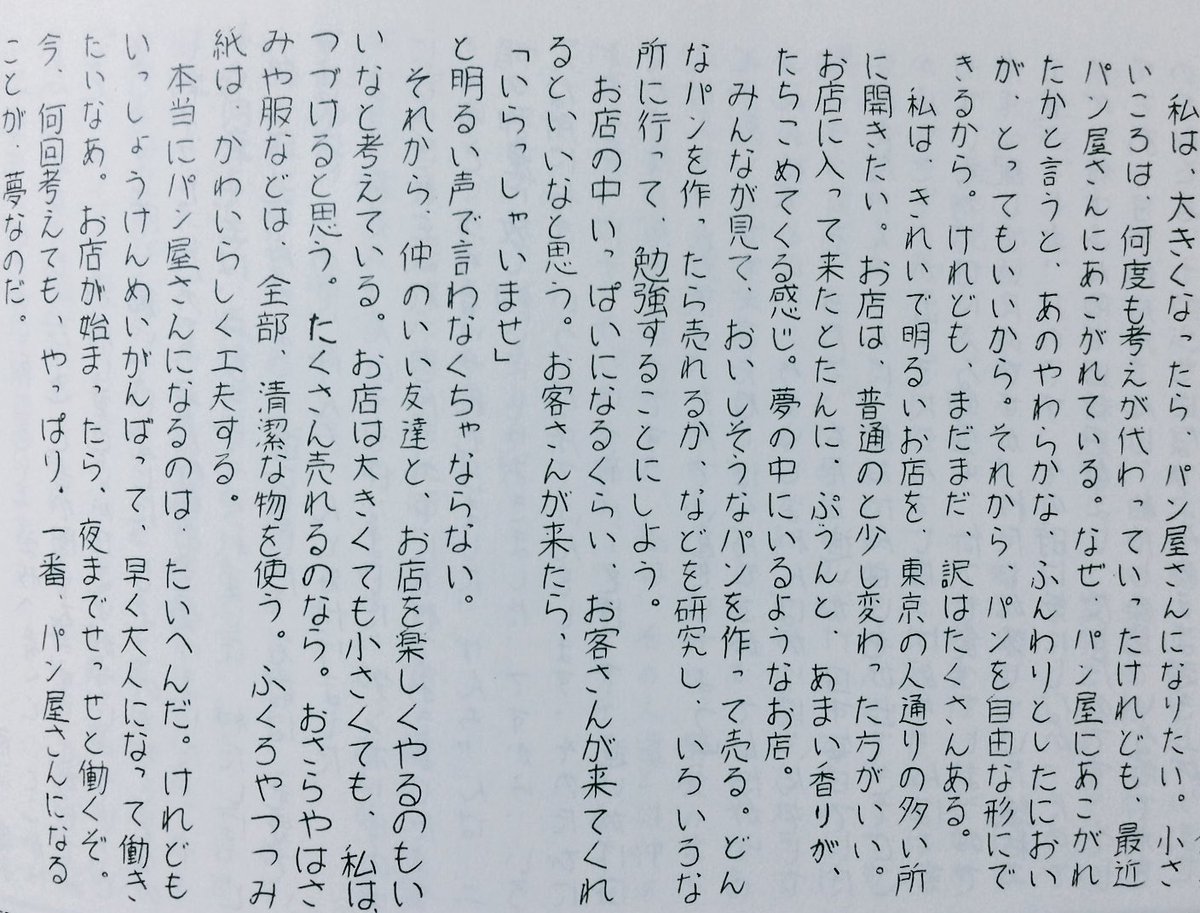 私は、大きくなったら、パン屋さんになりたい。小さ
いころは、何度も考えが代わっていったけれども、最近
パン屋さんにあこがれている。なぜ、パン屋にあこがれ
たかと言うと、あのやわらかな　ふんわりとしたにおい
が、とってもいいから。それから、パンを自由な形にで
きるから。けれども、まだまだ　訳はたくさんある。
私は、きれいで明るいお店を、東京の人通りの多い所
に開きたい。お店は、普通のと少し変わった方がいい。
お店に入って来たとたんに、ぷうんと、あまい香りが、
たちこめてくる感じ。夢の中にいるようなお店。
みんなが見て、おいしそうなパンを作って売る。どん
なパンを作ったら売れるか、などを研究し、いろいろな
所に行って、勉強することにしよう。
お店の中いっぱいになるくらい、お客さんが来てくれ
るといいなと思う。お客さんが来たら、
「いらっしゃいませ」
と明るい声で言わなくちゃならない。
それから、仲のいい友達と、お店を楽しくやるのもい
いなと考えている。お店は大きくても小さくても、私は、
つづけると思う。たくさん売れるのなら。おさらやはさ
みや服などは、全部、清潔な物を使う。ふくろやつつみ
紙は、かわいらしく工夫する。
本当にパン屋さんになるのは、たいへんだ。けれども
いっしょうけんめいがんばって、早く大人になって働き
たいなあ。お店が始まったら、夜までせっせと働くぞ。
今、何回考えても、やっぱり、一番、パン屋さんになる
ことが、夢なのだ。